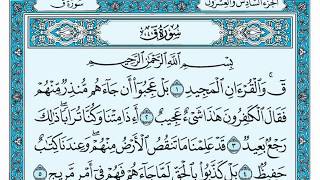 الجزء السادس والعشرون
سورة ق
سُورَةُ قٓ
بِسْمِ اللَّهِ الرَّحْمَٰنِ الرَّحِيمِ
قٓ ۚ وَالْقُرْءَانِ الْمَجِيدِ ١ بَلْ عَجِبُوٓا۟ أَن جَآءَهُم مُّنذِرٌ مِّنْهُمْ
فَقَالَ الْكَٰفِرُونَ هَٰذَا شَىْءٌ عَجِيبٌ ٢ أَءِذَا مِتْنَا وَكُنَّا تُرَابًا ۖ ذَٰلِكَ
رَجْعٌۢ بَعِيدٌ ٣ قَدْ عَلِمْنَا مَا تَنقُصُ الْأَرْضُ مِنْهُمْ ۖ وَعِندَنَا كِتَٰبٌ
حَفِيظٌۢ ٤ بَلْ كَذَّبُوا۟ بِالْحَقِّ لَمَّا جَآءَهُمْ فَهُمْ فِىٓ أَمْرٍ مَّرِيجٍ ٥